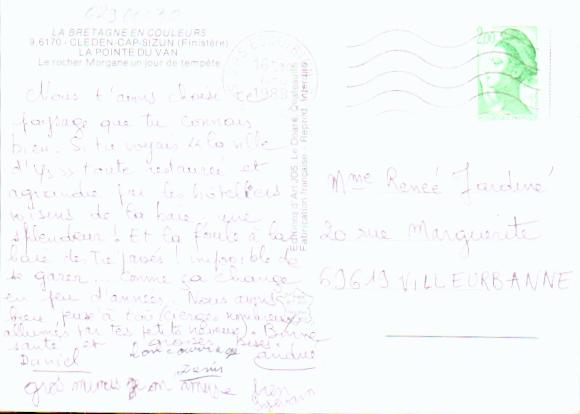 LA BRETAGNE EN COULEURS
9.6170 - CLEDEN-CAP-SIZUN (Finistère)
LA POINTE DU VAN
Le rocher Morgane un jour de tempête
Nous t'avons choisi ce
paysage que tu connais
bien. Si tu voyais la ville
d'Ys toute restaurée et
agrandie par les hôteliers
voisins de la baie, que
splendeur ! Et la foule à la
baie des Trépassés ! impossible de
se garer. Comme ça change
en peu d'années. Nous avons
bien pensé à toi (cierges nombreux
allumés par tes petits neveux). Bonne
santé et grosses bises.
Daniel
Denis
andrée
gros mimis
Editions d'Art JOS Le Doaré, Châteaulin
Fabrication française - Reprod. Interdite
2,00
Mme Renée Jardiné
20 rue Marguerite
69619 VILLEURBANNE